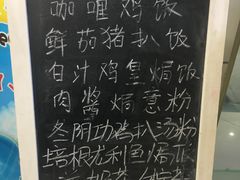 咖喱鸡饭
鲜茄猪扒饭
白汁鸡皇焗饭
肉酱焗意粉
冬阴功鸡扒汤粉
培根龙利鱼焗